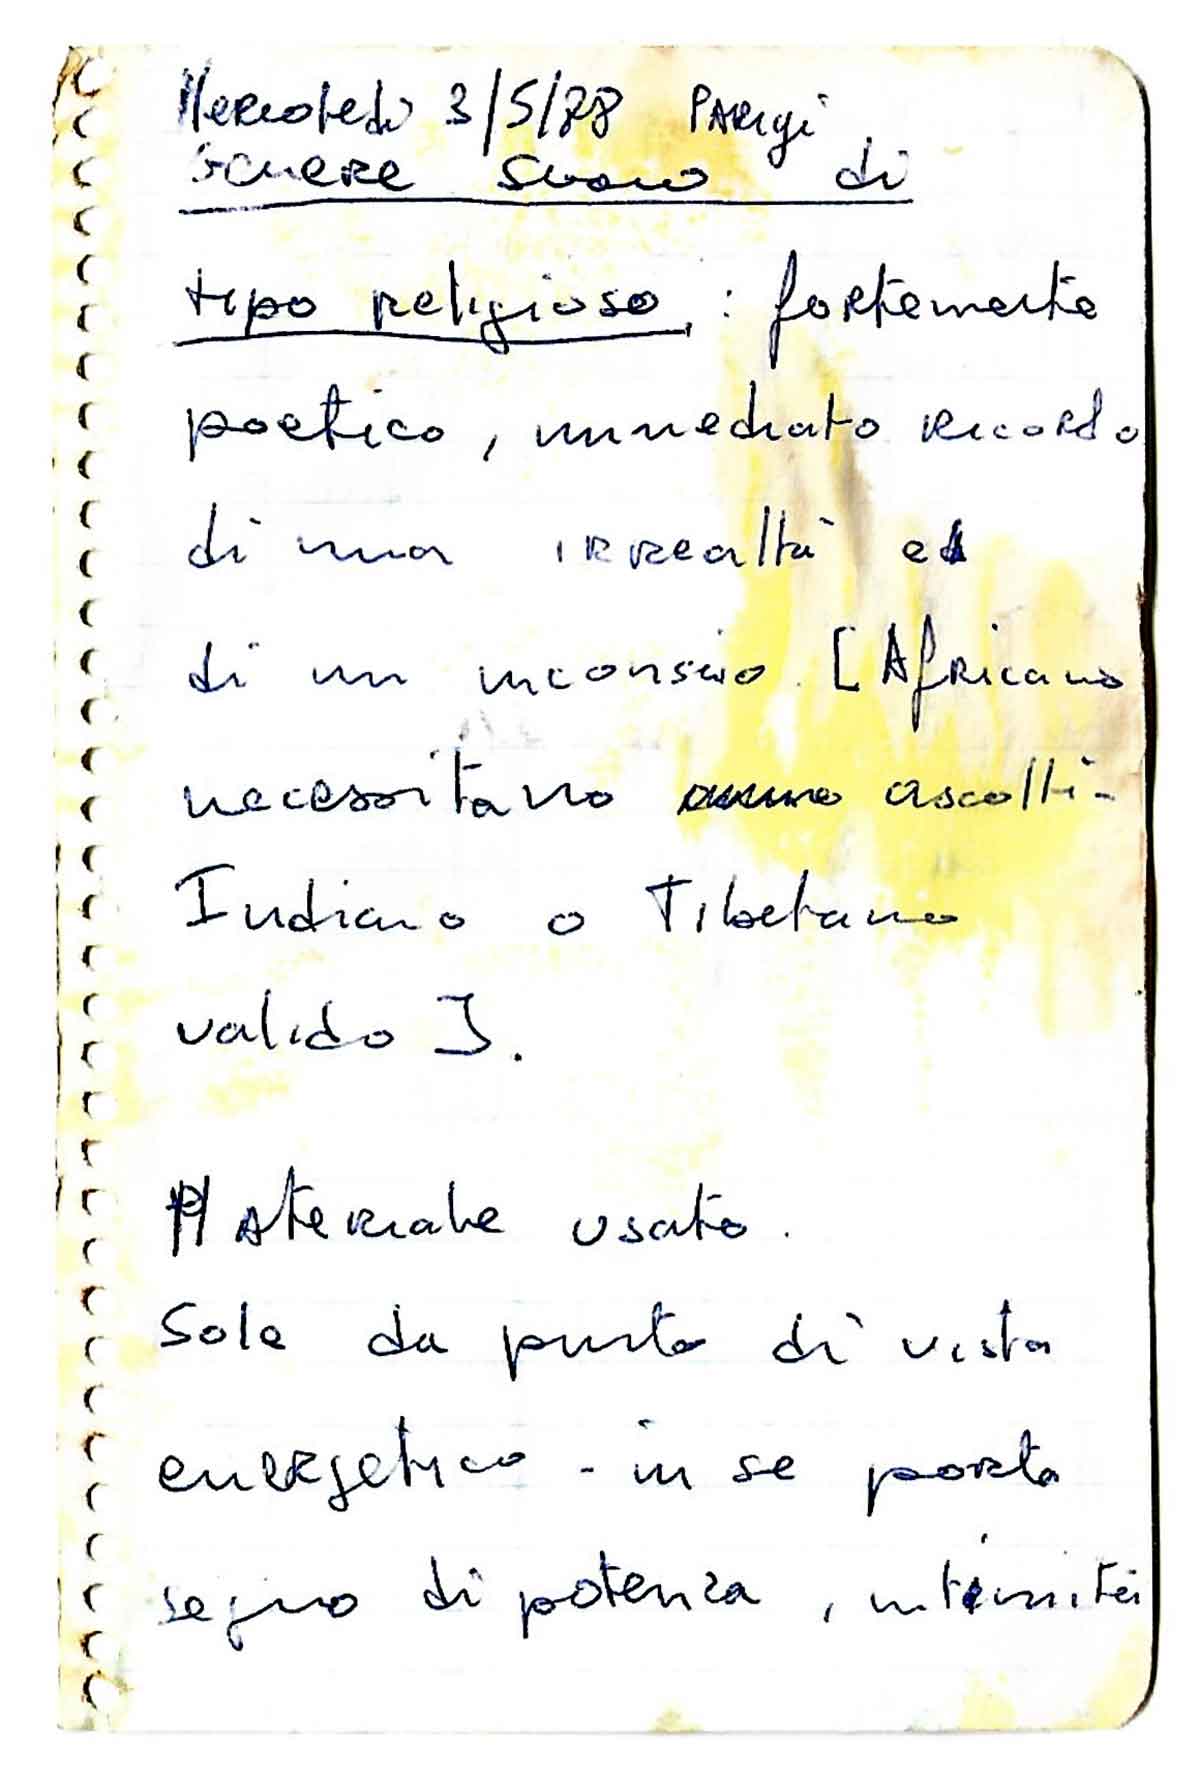 Mercoledì 3/5/88 PARIgi
Genere suono di
tipo religioso : fortemente
poetico, immediato ricordo
di una irrealtà ed
di un inconscio. [Africano
necessitano ascolti-
Indiano o Tibetano
valido ].
Materiale usato.
Sole da punto di vista
energetico - in se porta
segno di potenza, intensità